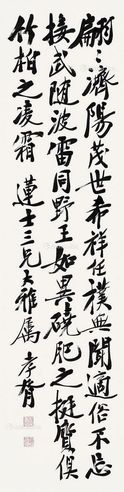 翩〻濟陽茂世希祥任樸無聞適俗不忘
接武随波雷同野王如異磽肥之挺質俱
竹柏之凌霜 蓮士三兄大雅属 孝胥